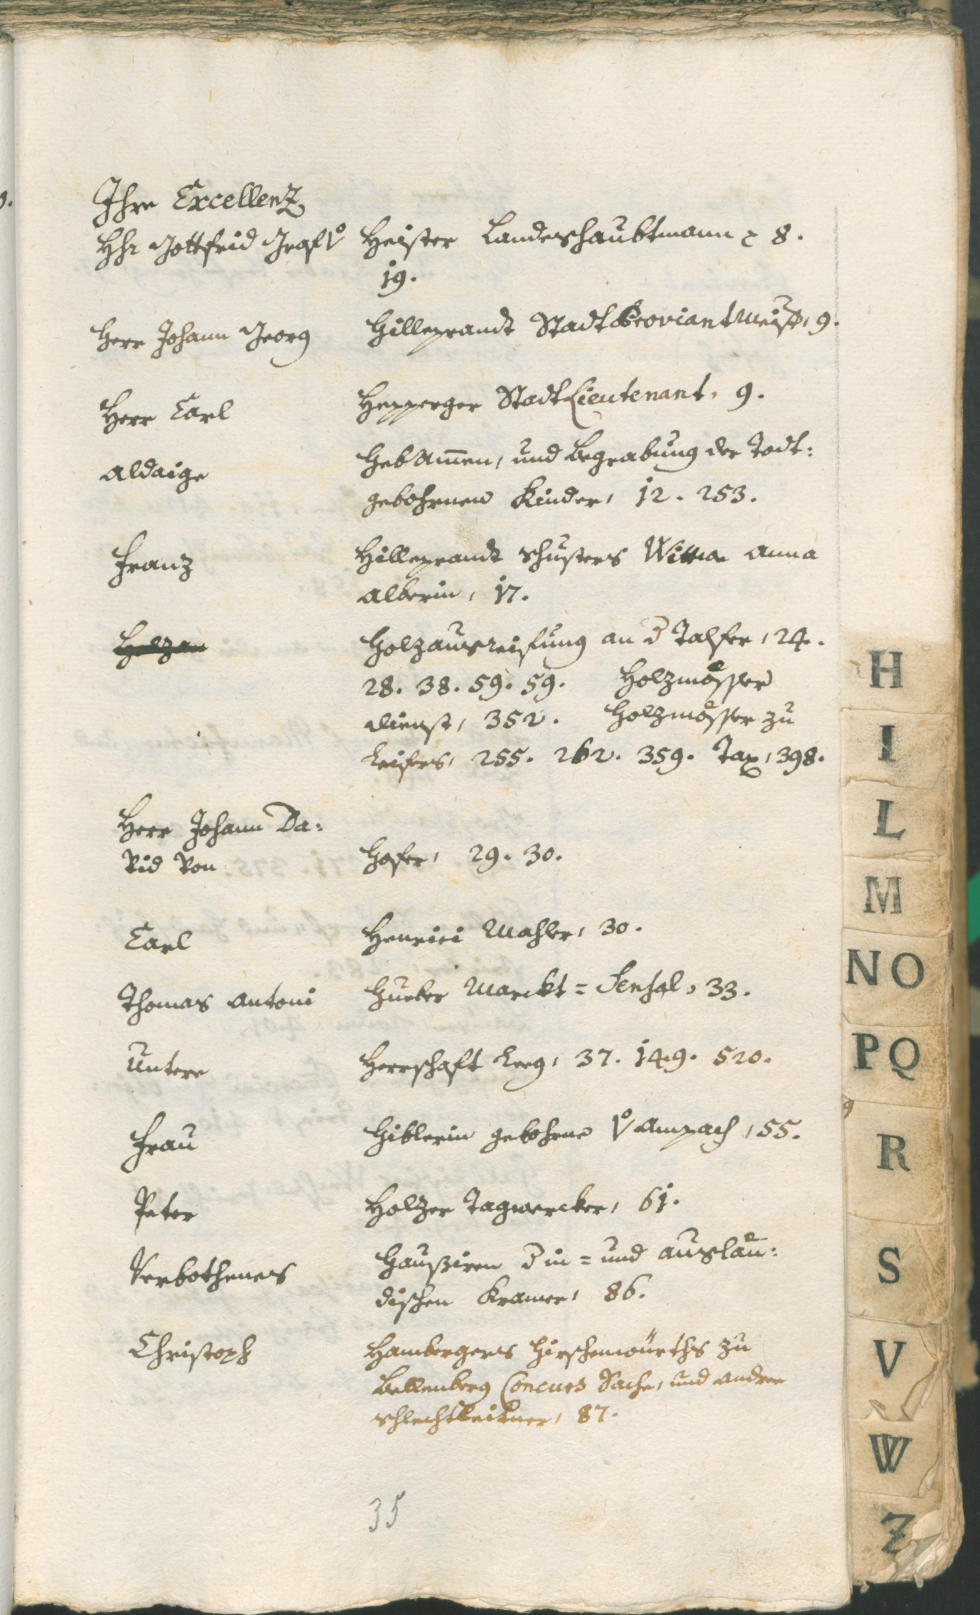 Ihre Excellenz
Hh: Gottfrid Graf v Heister Landeshaubtmann 8.
19.
Herr Johann Georg Hilleprandt Stadt Proviant Meister, 9.
Herr Carl Hepperger Stadt Lieutenant, 9.
Aldaige HebAmen, und Begrabung der Todt:
gebohrnen Kinder, 12. 253.
Franz Hilleprandt schusters Wittwe Anna
Alberin, 17.
Holzausreisung an d Talfer, 24.
28. 38. 59. 59. Holzmösser
dienst, 352. Holzmösser zu
Leifers, 255. 262. 359. Tax, 398.
Herr Johann Da:
vid von Hofer, 29. 30.
Carl Henrici Mahler, 30.
Thomas Antoni Hueber Marckt = Sensal, 33.
Untere Herrschaft Leeg, 37. 149. 520.
Frau Hiblerin gebohrne v Ampach, 55.
Peter Holzer Tagwercker, 61.
Verbothenes Haußiren d in = und auslän:
dischen Kramer, 86.
Christoph Hambergers Hirschenwürths zu
Bellenberg Concurs Sache, und andrer
87.
35
H
I
L
M
NO
PQ
R
S
V
W
Z